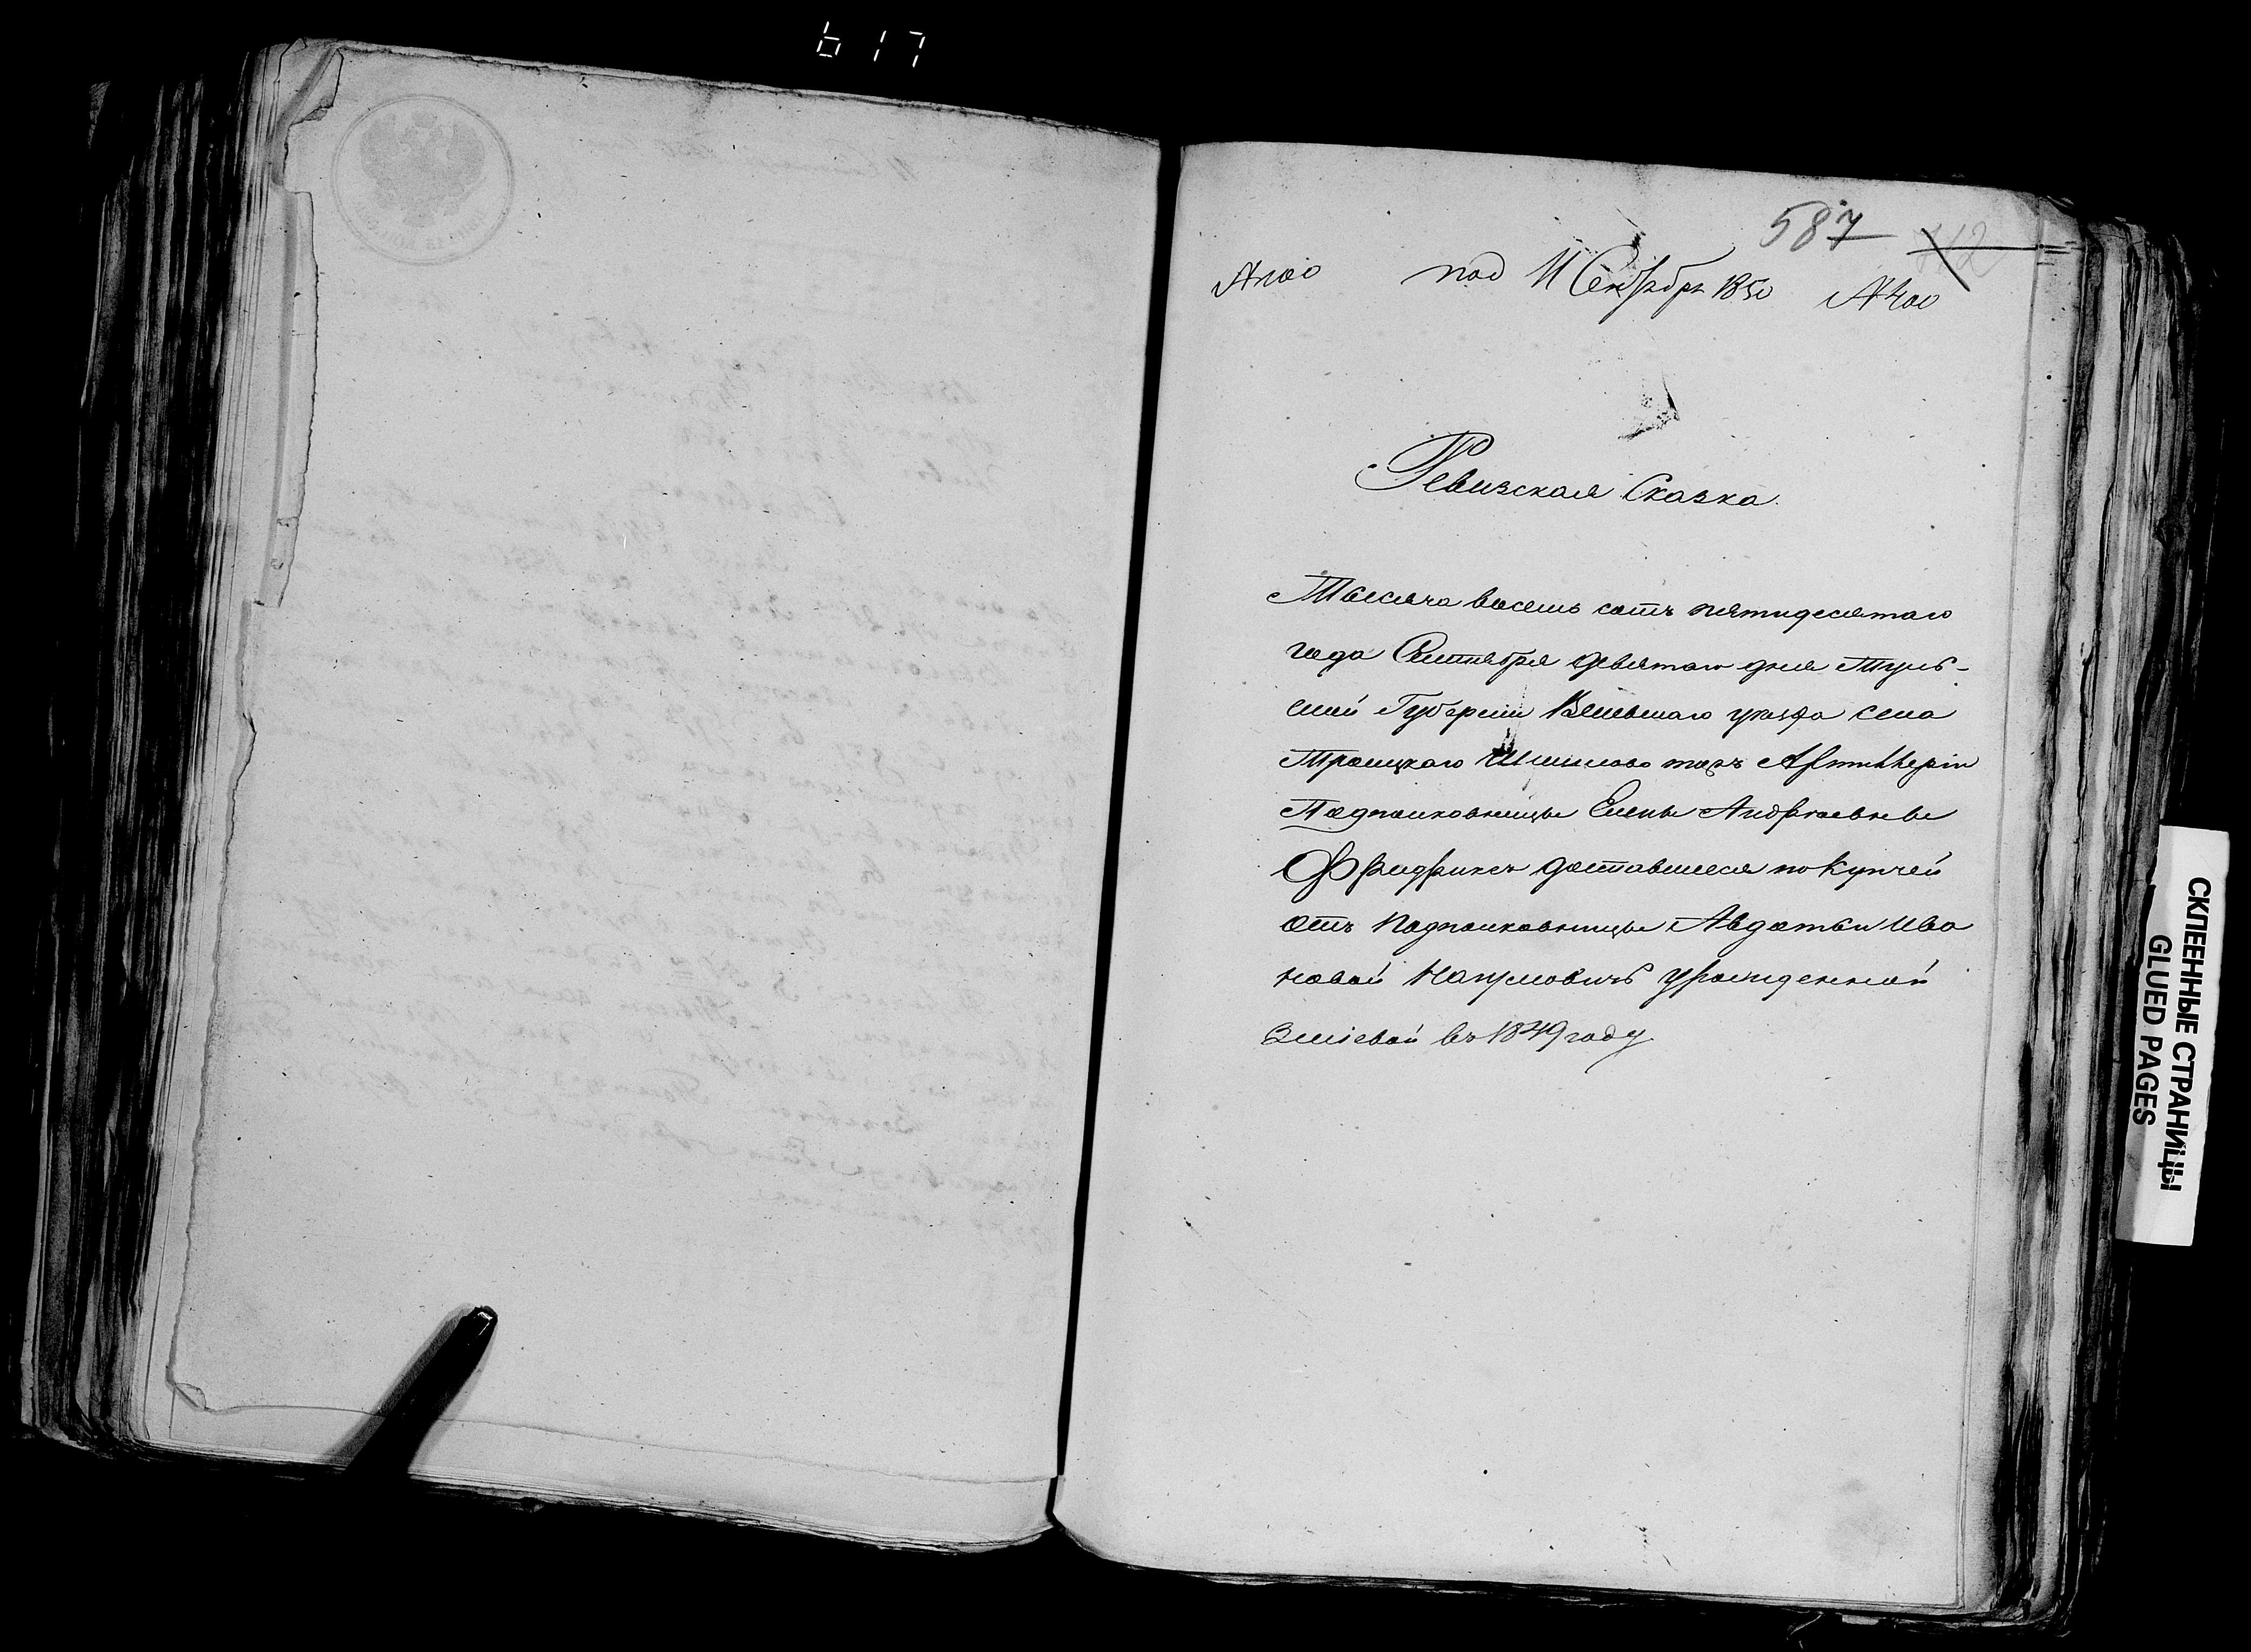 617
587
112
№100 под 11 Сентября 1850 №400
Ревизская Сказка.
Тысяча восемь сотъ пятидесятаго
года Сентября девятаго дня Туль-
ской Губернии Белевскаго уезда села
Троицкаго тожъ Артиллерiи
Подполковницы Елены Андреевны
Фридрихсъ доставшиеся по купчей
отъ Подполковницы Авдотьи Ива
новой урожденной
Змiевой въ 1849 году
СКЛЕЕННЫЕ СТРАНИЦЫ
GLUED PAGES